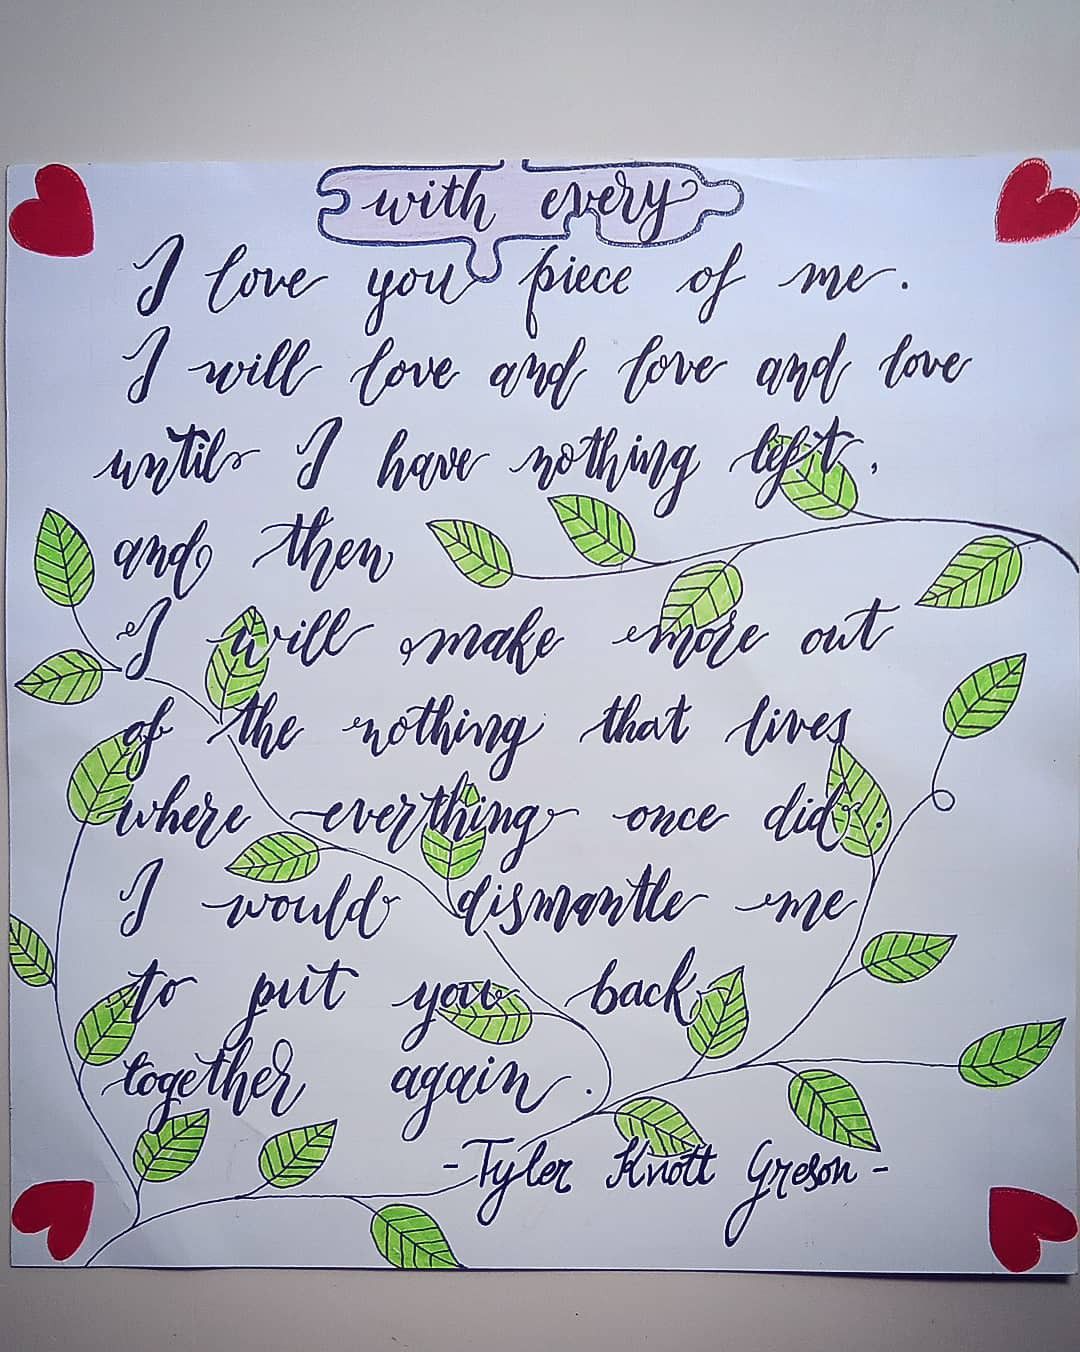 with every
I love you piece of me.
I will love and love and love
until I have nothing left,
and then
I will make more out
of the nothing that lives
where everything once did.
I would dismantle me
to put you back
together again.
-Tyler Knott Greson-